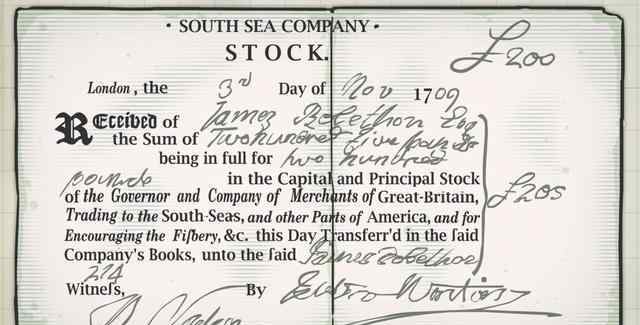 • SOUTH SEA COMPANY •
STOCK.
£200
London, the 3rd Day of Nov 1709
Received of James
the Sum of Two hundred five
being in full for two hundred
pounds in the Capital and Principal Stock
of the Governor and Company of Merchants of Great-Britain,
£205
Trading to the South-Seas, and other Parts of America, and for
Encouraging the Fiſhery, &c. this Day Tranſferr'd in the ſaid
Company's Books, unto the ſaid James
224
Witneſs, By